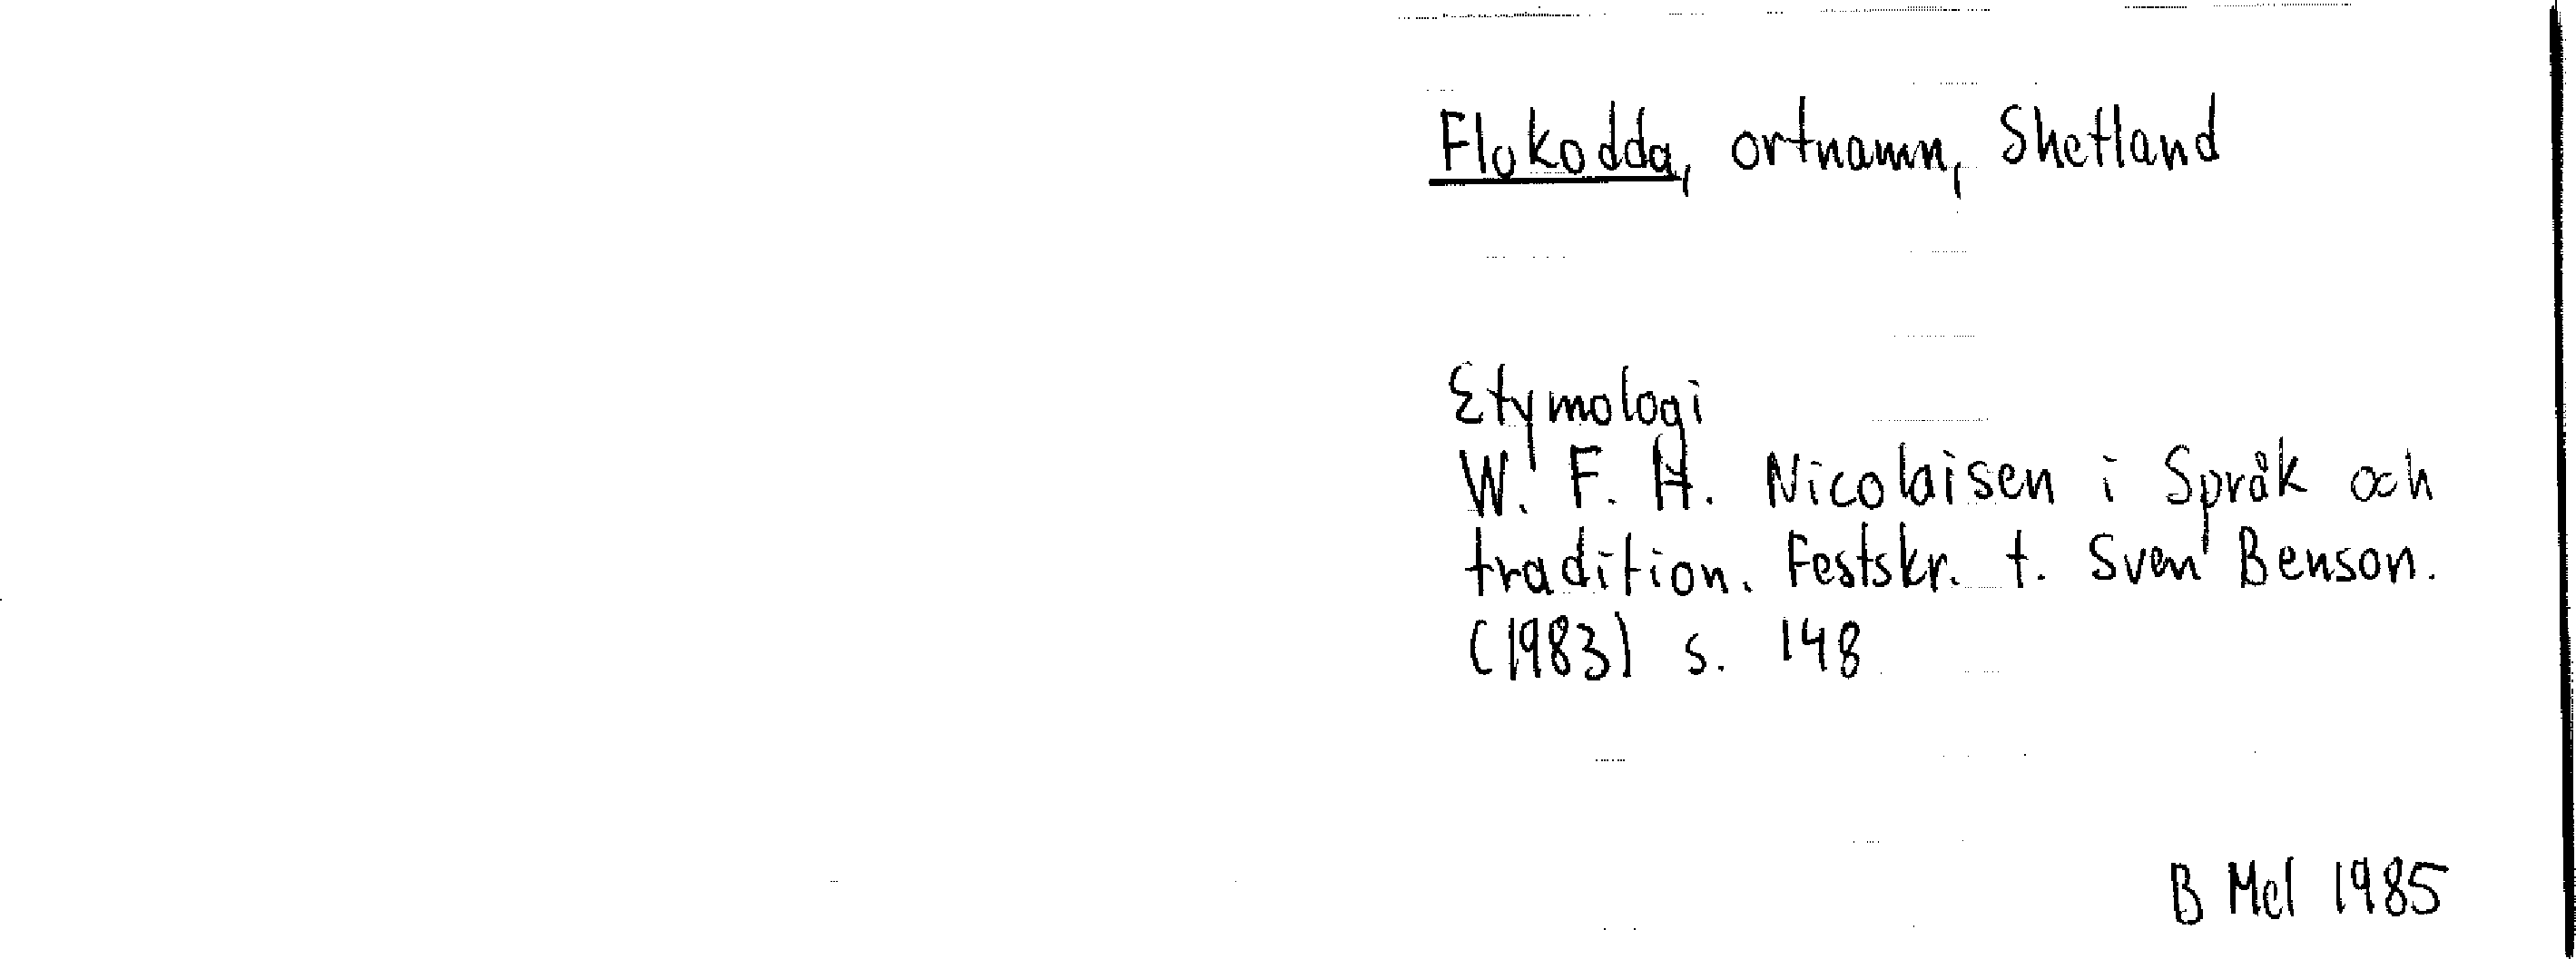 Flukodda, ortnamn, Shetland
Etymologi
W. F. H. Nicolaisen i Språk och
tradition. Festskr. t. Sven Benson.
(1983) s. 148
B Mel 1985